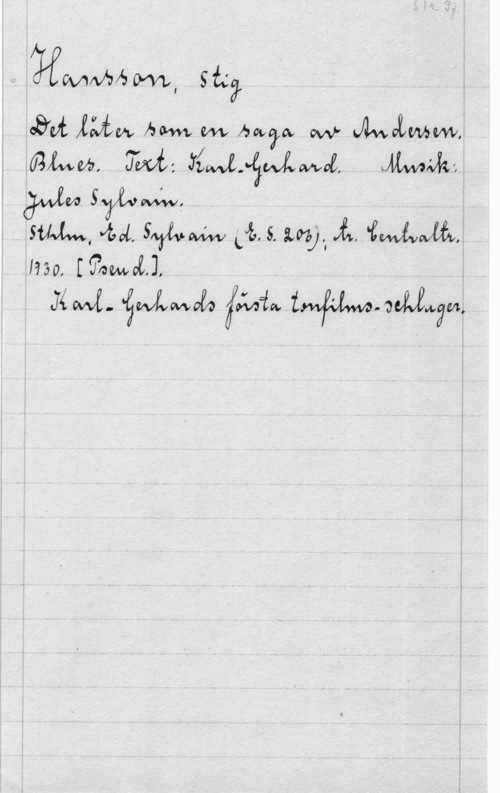 Hansson, Stig
Det låter som en saga av Andersen.
Blues. Text: Karl-Gerhard. Musik:
Jules Sylvain.
Sthlm, Ed. Sylvain (E. S. 203), tr. Centraltr.
1930. [Pseud.].
Karl-Gerhards första tonfilms-schlager.